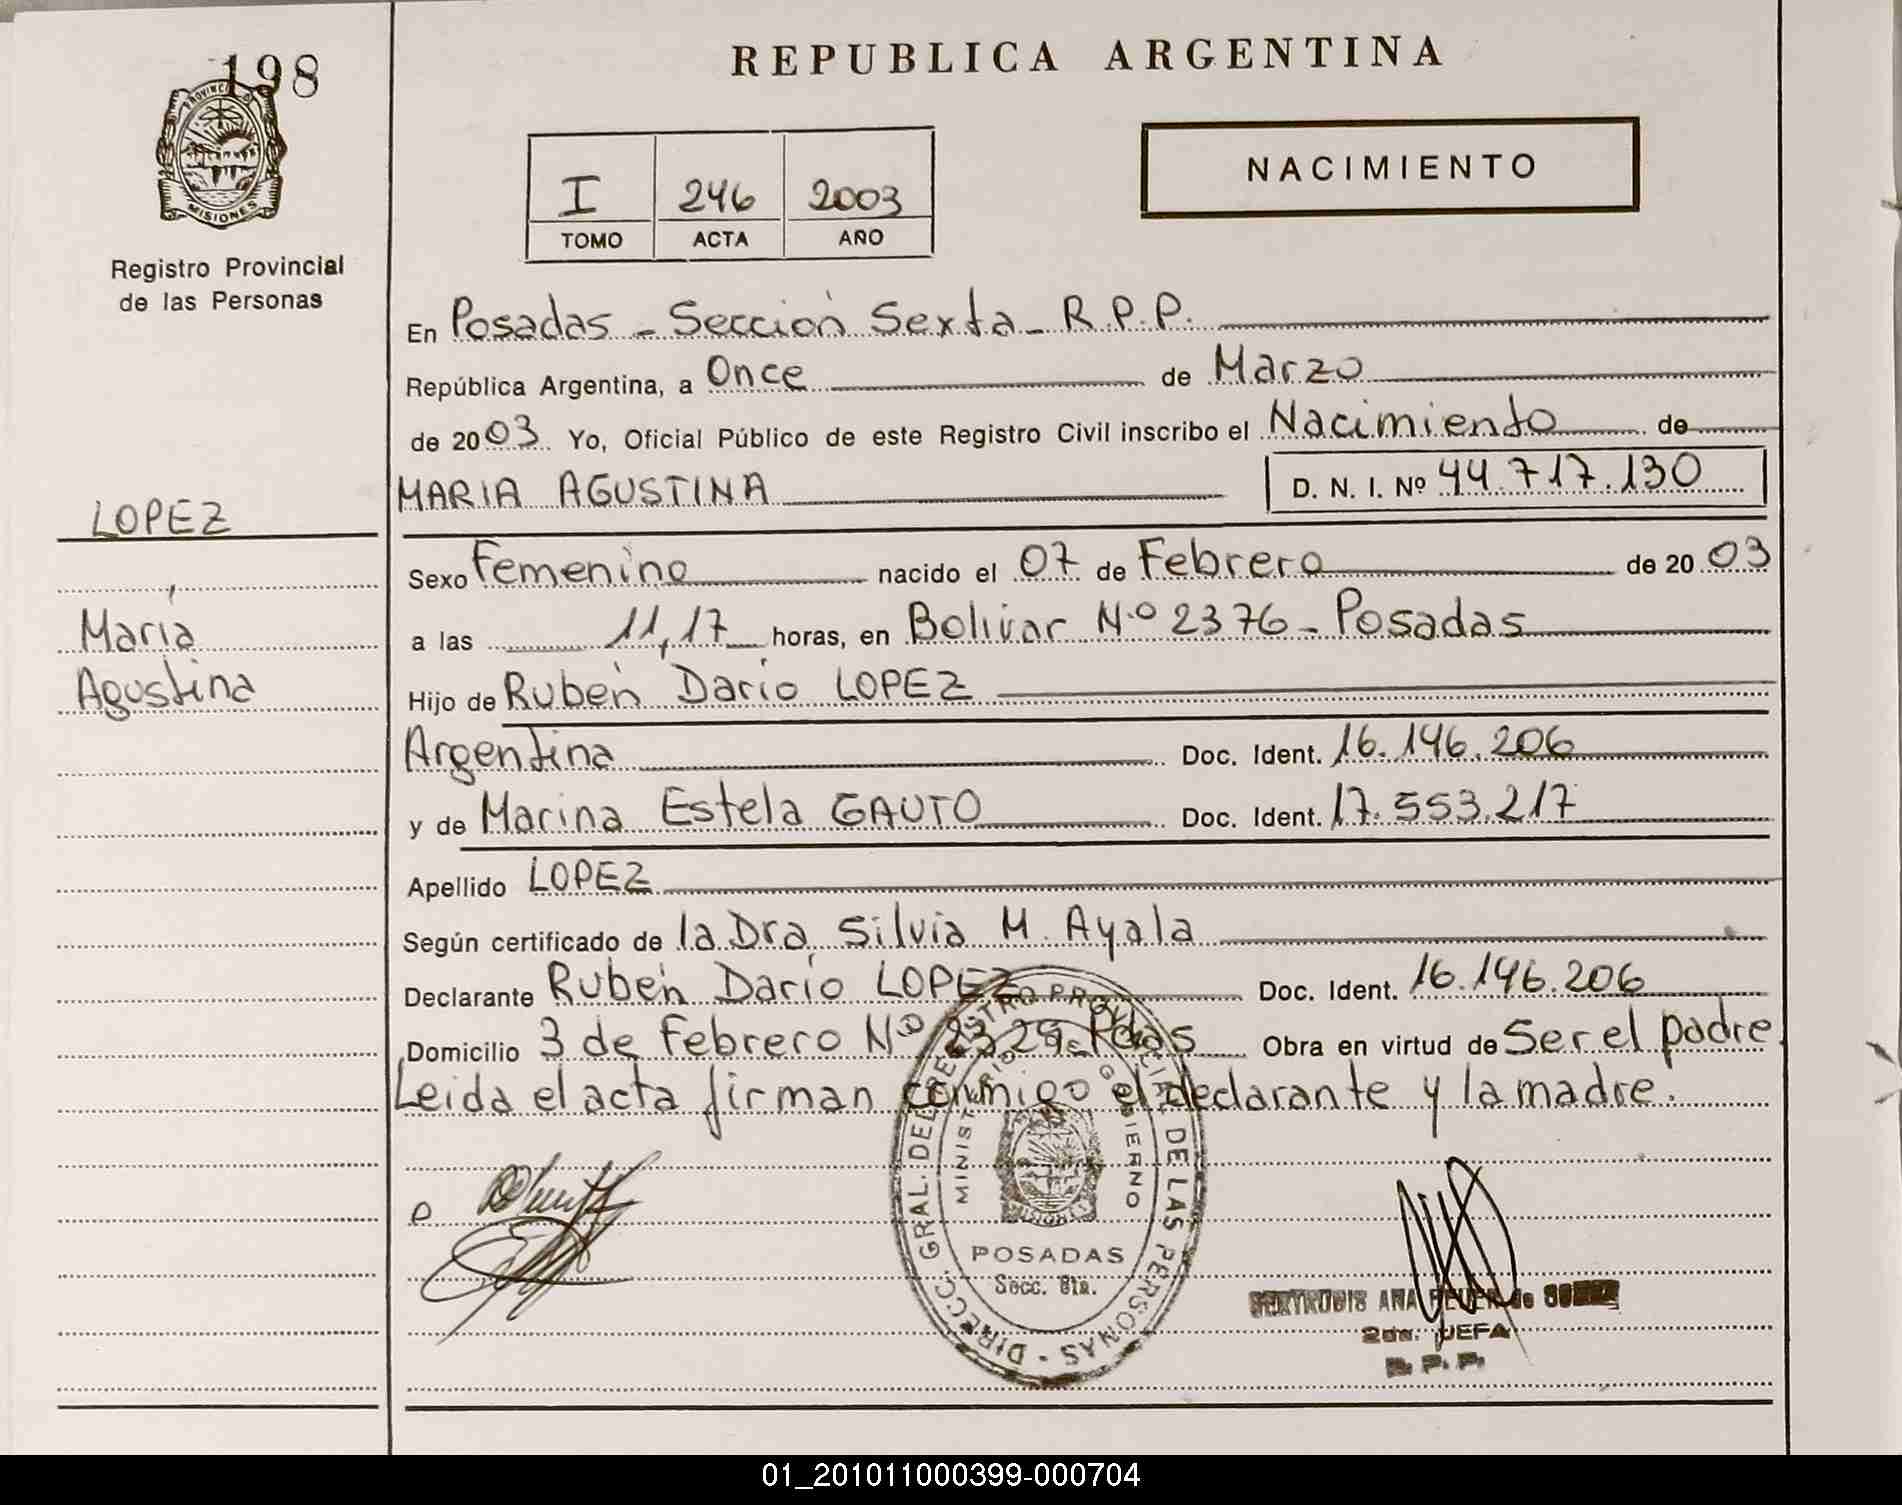 198
REPUBLICA ARGENTINA
PROVINCIA MISIONES
Registro Provincial
de las Personas
I 246 2003
TOMO ACTA AÑO
NACIMIENTO
En Posadas - Sección Sexta - R.P.P.
República Argentina, a Once de Marzo
de 2003 Yo, Oficial Público de este Registro Civil inscribo el Nacimiento de
MARIA AGUSTINA D. N. I. Nº 44.717.130
LOPEZ
María
Agustina
Sexo Femenino nacido el 07 de Febrero de 2003
a las 11,17 horas, en Bolívar N.º 2376 - Posadas
Hijo de Rubén Darío LOPEZ
Argentina Doc. Ident. 16.146.206
y de Marina Estela GAUTO Doc. Ident. 17.553.217
Apellido LOPEZ
Según certificado de la Dra Silvia M. Ayala
Declarante Rubén Darío LOPEZ Doc. Ident. 16.146.206
Domicilio 3 de Febrero Nº Pdas Obra en virtud de Ser el padre.
Leida el acta firman conmigo el declarante y la madre.
DIRECC. GRAL. DEL REGISTRO PROVINCIAL DE LAS PERSONAS
MINISTERIO GOBIERNO
MISIONES
POSADAS
Secc. 6ta.
ANA de
2da. JEFA
R. P. P.
01_201011000399-000704